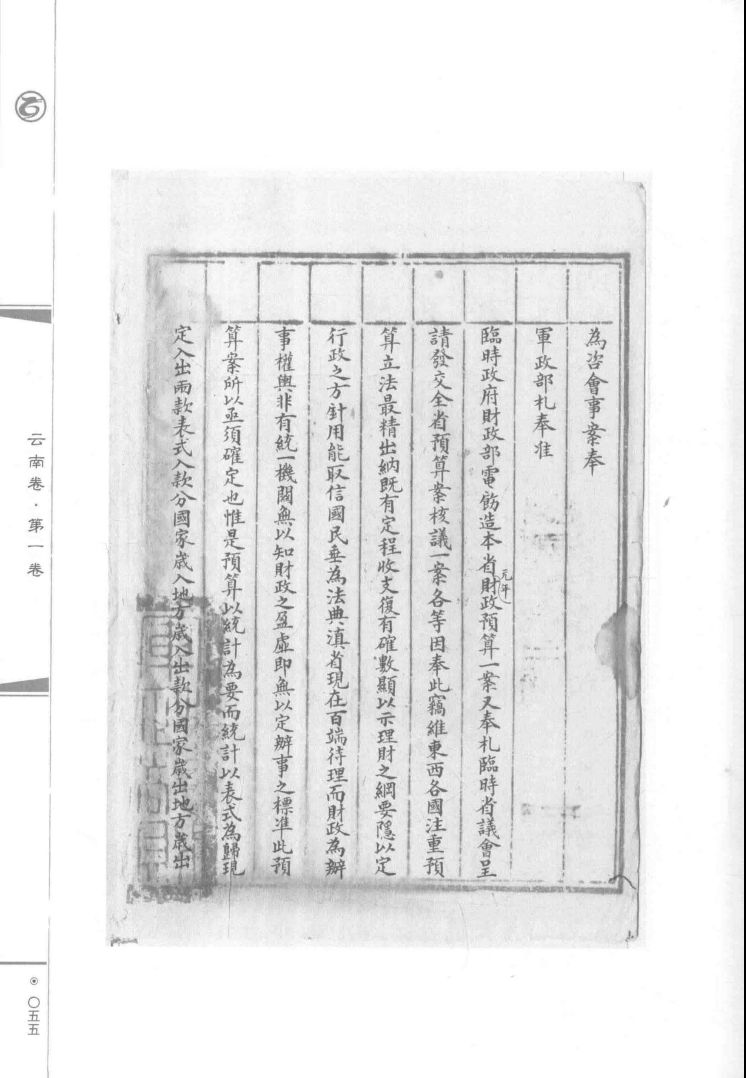 為咨會事案奉
軍政部札奉准
臨時政府財政部電飭造本省財政預算一案又奉札臨時省議會呈
元年
請發交全省預算案核議一案各等因奉此竊維東西各國注重預
算立法最精出納既有定程收支復有確數顯以示理財之綱要隱以定
行政之方針用能取信國民垂為法典滇省現在百端待理而財政為辦
事權輿非有統一機關無以知財政之盈虛即無以定辦事之標準此預
算案所以亟須確定也惟是預算以統計為要而統計以表式為歸現
定入出兩款表式入款分國家歲入地方歲入出款分國家歲出地方歲出
云南卷·第一卷
〇五五